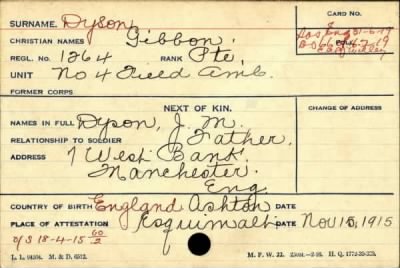 SURNAME. Dyson, CARD NO.
CHRISTIAN NAMES Gibbon.
REGL. NO. 1264 RANK Pte,
UNIT No 4 Field Amb.
FORMER CORPS
NEXT OF KIN. CHANGE OF ADDRESS
NAMES IN FULL Dyson, J. M.
RELATIONSHIP TO SOLDIER Father.
ADDRESS 7 West Bank.
Manchester.
Eng
COUNTRY OF BIRTH England Ashton DATE
PLACE OF ATTESTATION Esquimalt DATE Nov 15, 1915
O/S 18-4-15 60/2
L. L. M. & D. M. F. W. 22. H. Q.